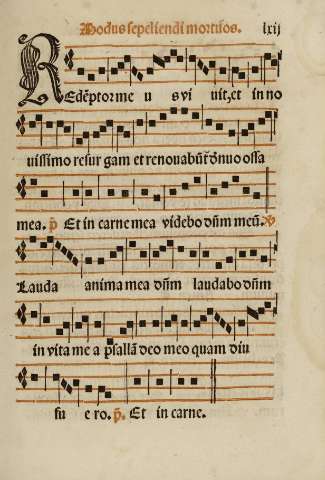 Modus sepeliendi mortuos. lxij
REdẽptor me us vi uit, et in no
uissimo resur gam et renouabũt᷑ dẽnuo ossa
mea. p̃ Et in carne mea videbo dñm meũ. ℣
Lauda anima mea dñm laudabo dñm
in vita me a psallã deo meo quam diu
fu e ro. p̃. Et in carne.